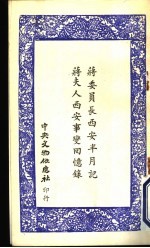 蔣委員長西安半月記
蔣夫人西安事變回憶錄
中央文物供應社 印行